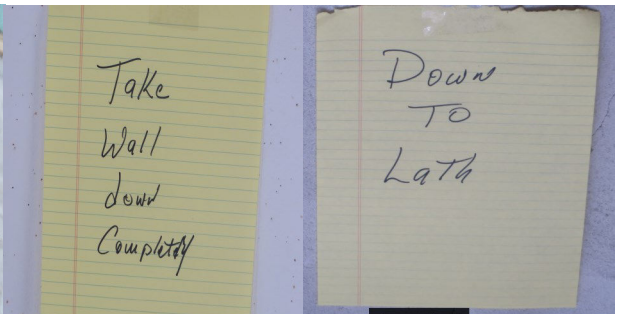 Take
Wall
down
Completely
Down
TO
Lath